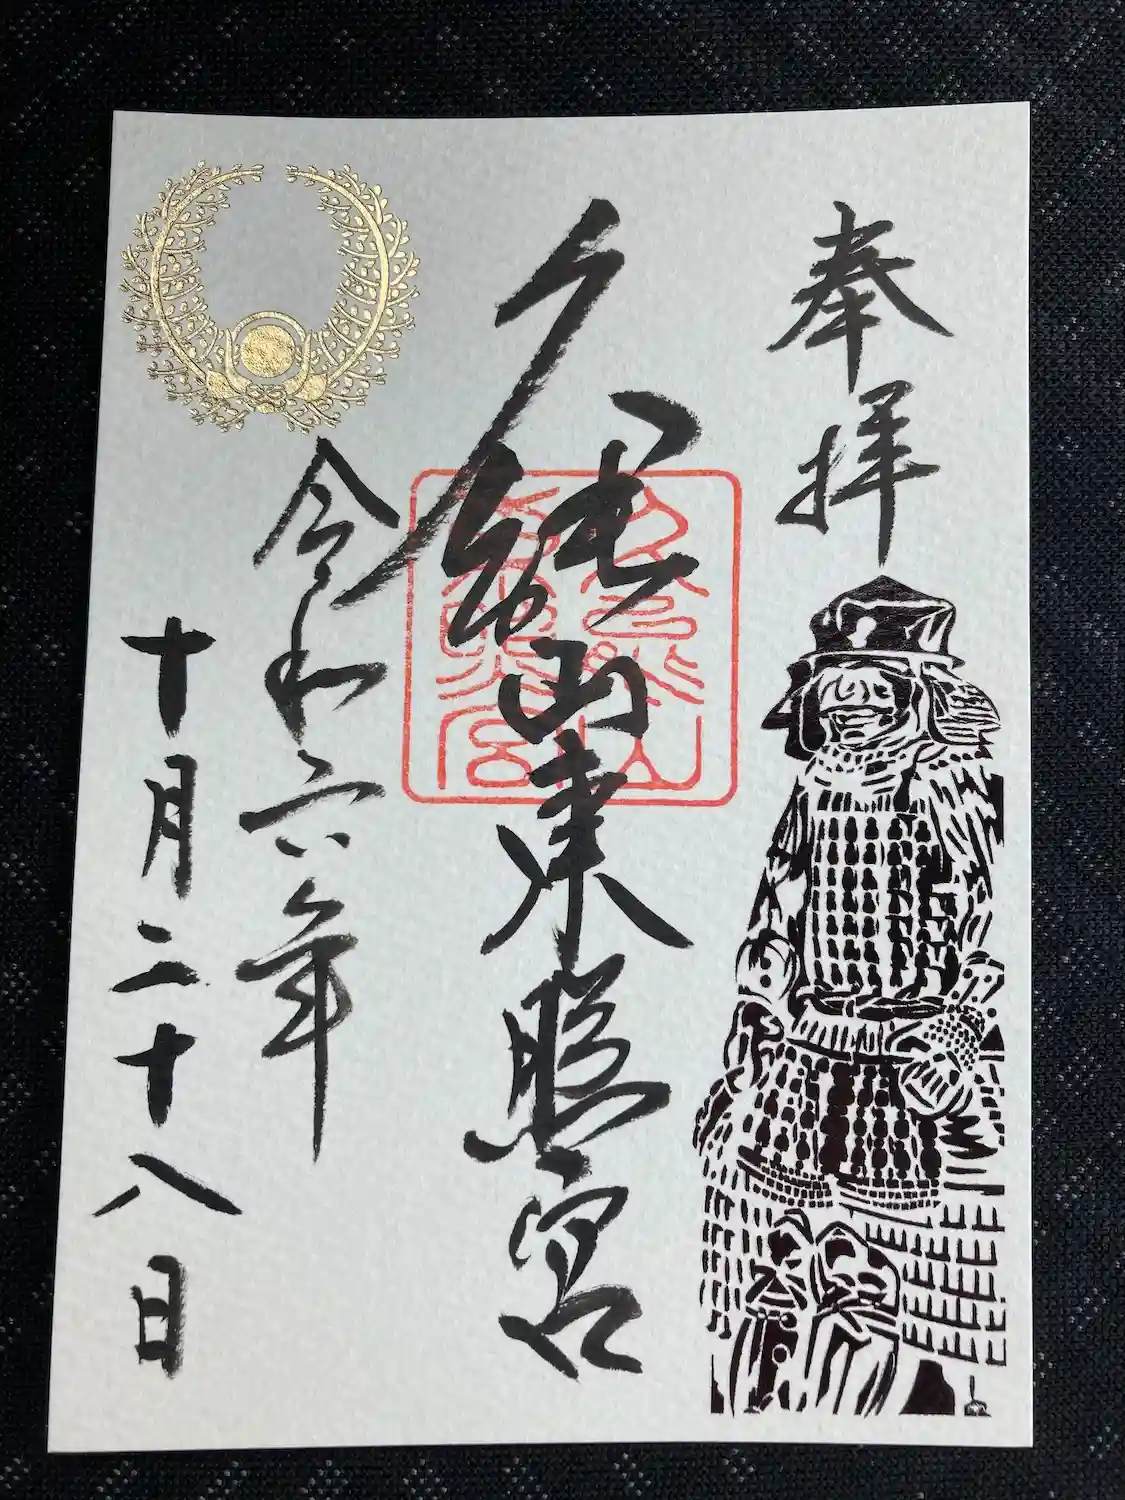 奉拝
久能山東照宮
令和六年
十月二十八日